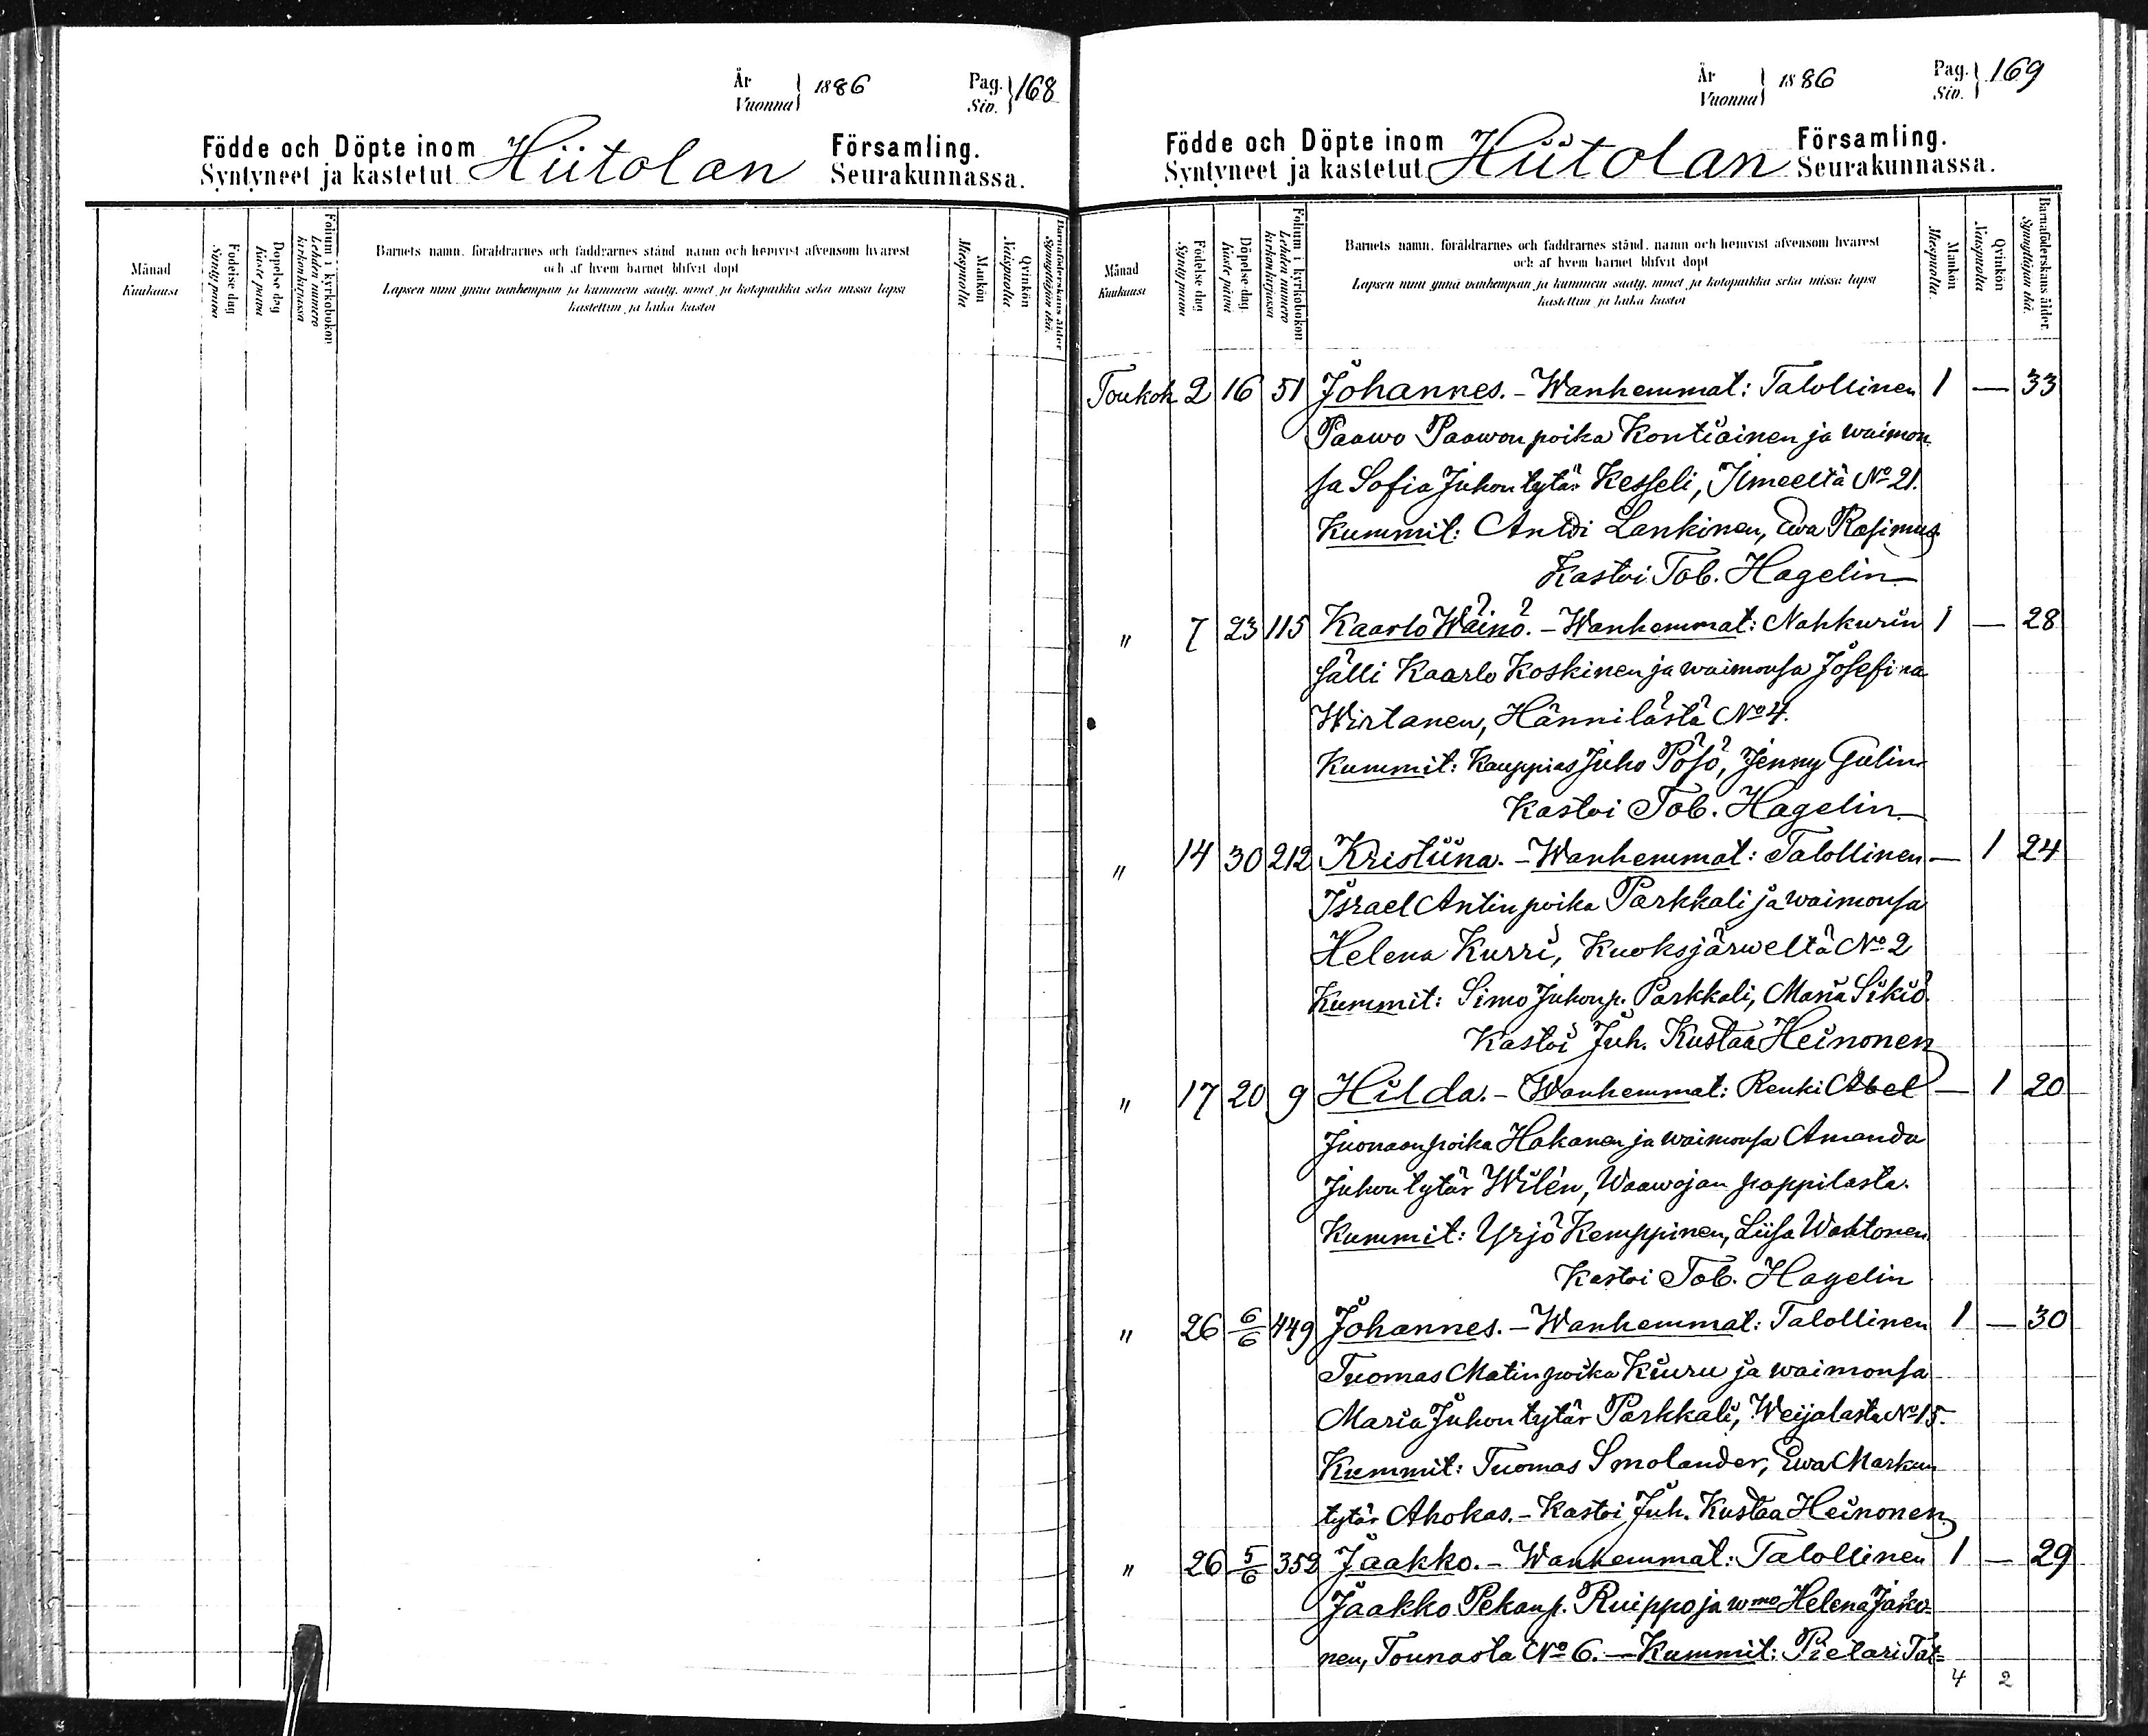 År
Vuonna } 1886 Pag.
Siv. } 168
Födde och Döpte inom Hiitolan Församling.
Syntyneet ja kastetut Seurakunnassa.
Månad
Kuukausi
Födelse dag
Synty päivä
Döpelse dag
Kaste päivä
Folium i kyrkoboken
Lehden numero
kirkonkirjassa
Barnets namn, föräldrarnes och faddrarnes stånd, namn och hemvist äfvensom hvarest
och af hvem barnet blifvit döpt
Lapsen nimi ynnä vanhempain ja kummein sääty, nimet ja kotopaikka sekä missä lapsi
kastettiin ja kuka kastoi
Mankön
Miespuolta
Qvinkön
Naispuolta
Barnaföderskans ålder
Synnyttäjän ikä.
År
Vuonna } 1886 Pag.
Siv. } 169
Födde och Döpte inom Hiitolan Församling.
Syntyneet ja kastetut Seurakunnassa.
Månad
Kuukausi
Födelse dag
Synty päivä
Döpelse dag
Kaste päivä
Folium i kyrkoboken
Lehden numero
kirkonkirjassa
Barnets namn, föräldrarnes och faddrarnes stånd, namn och hemvist äfvensom hvarest
och af hvem barnet blifvit döpt
Lapsen nimi ynnä vanhempain ja kummein sääty, nimet ja kotopaikka sekä missä lapsi
kastettiin ja kuka kastoi
Mankön
Miespuolta
Qvinkön
Naispuolta
Barnaföderskans ålder.
Synnyttäjän ikä.
Toukok 2 16 51 Johannes. - Wanhemmat: Talollinen 1 — 33
Paawo Paawon poika Kontiainen ja waimon
sa Sofia Juhon tytär Kesseli, Ilmeeltä No 21.
Kummit: Antti Lankinen, Ewa Rasimus
Kastoi Tob. Hagelin
" 7 23 115 Kaarlo Wäinö. - Wanhemmat: Nahkurin 1 — 28
sälli Kaarlo Koskinen ja waimonsa Josefina
Wirtanen, Hännilästä No 4.
Kummit: Kauppias Juho Pösö, Jenny Gulin
Kastoi Tob. Hagelin
" 14 30 212 Kristiina. - Wanhemmat: Talollinen — 1 24
Israel Antin poika Parkkali ja waimonsa
Helena Kurri, Kuoksjärweltä No 2
Kummit: Simo Juhonp. Parkkali, Maria Sikiö
Kastoi Juh. Kustaa Heinonen
" 17 20 9 Hilda. - Wanhemmat: Renki Abel — 1 20
Juonaan poika Hakanen ja waimonsa Amanda
Juhon tytär Wilén, Waawojan pappilasta.
Kummit: Yrjö Kemppinen, Liisa Wahtonen
Kastoi Tob. Hagelin
" 26 6/6 449 Johannes. - Wanhemmat: Talollinen 1 — 30
Tuomas Matin poika Kiuru ja waimonsa
Maria Juhon tytär Parkkali, Weijalasta No 15.
Kummit: Tuomas Smolander, Ewa Markun
tytär Ahokas. - Kastoi Juh. Kustaa Heinonen
" 26 5/6 352 Jaakko. - Wanhemmat: Talollinen 1 — 29
Jaakko Pekanp. Ruippo ja wmo Helena Jäsko-
nen, Tounasta No 6. - Kummit: Pietari Tat=
4 2